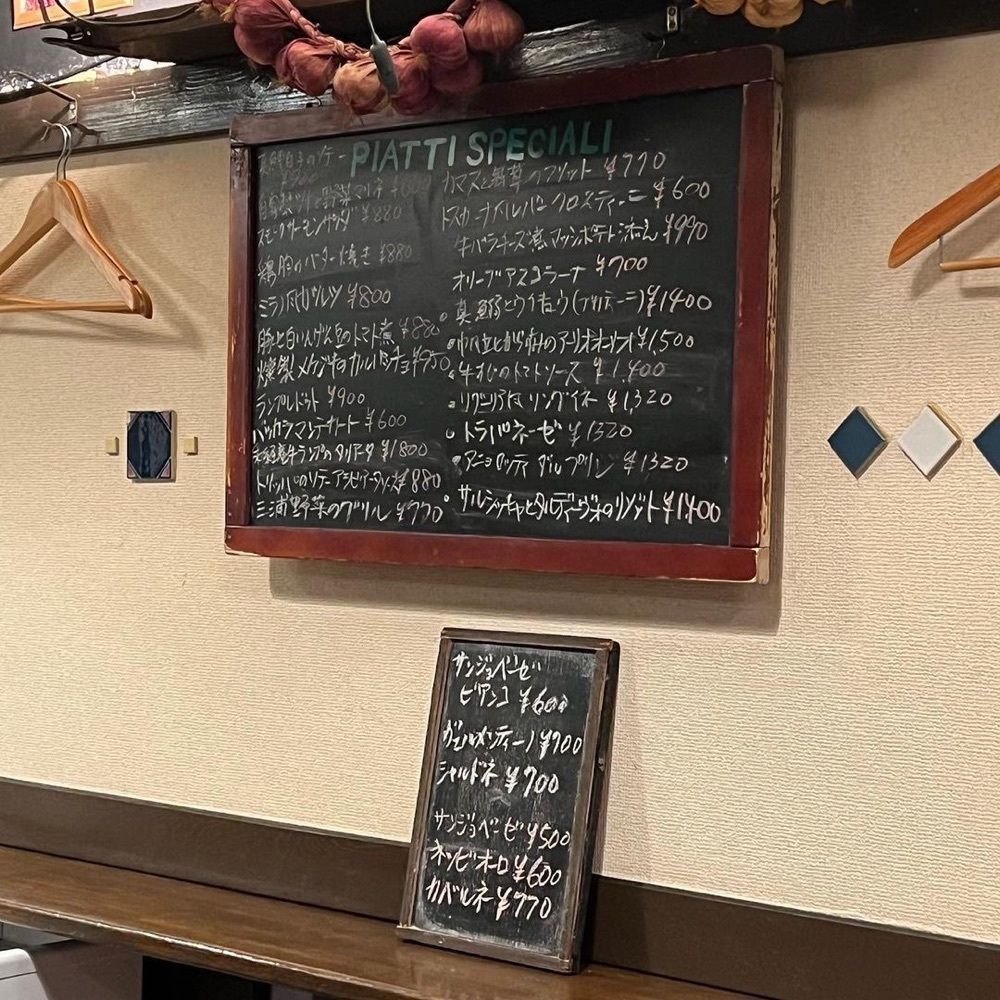 PIATTI SPECIALI
スモークサーモンサラダ ¥880
鶏肉のバター焼き ¥880
ミラノ風カツレツ ¥800
豚と白いんげん豆のトマト煮 ¥880
燻製メカジキのカルパッチョ ¥950
ランプレドット ¥900
バッカラマンテカート ¥600
牛ランプのタリアータ ¥1800
トリッパのソテー ¥880
三浦野菜のグリル ¥770
カマスと野草のフリット ¥770
トスカーナ クロスティーニ ¥600
牛バラチーズ煮マッシュポテト添え ¥990
オリーブアスコラーナ ¥700
真鰯とウイキョウ(ブカティーニ) ¥1400
¥1,500
牛すじのトマトソース ¥1,400
リグーリア風リングイネ ¥1,320
トラパネーゼ ¥1320
アニョロッティ ダル プリン ¥1320
サルシッチャとタルディーヴォのリゾット ¥1400
サンジョベーゼ
ビアンコ ¥600
ヴェルメンティーノ ¥700
シャルドネ ¥700
サンジョベーゼ ¥500
ネッビオーロ ¥600
カベルネ ¥770